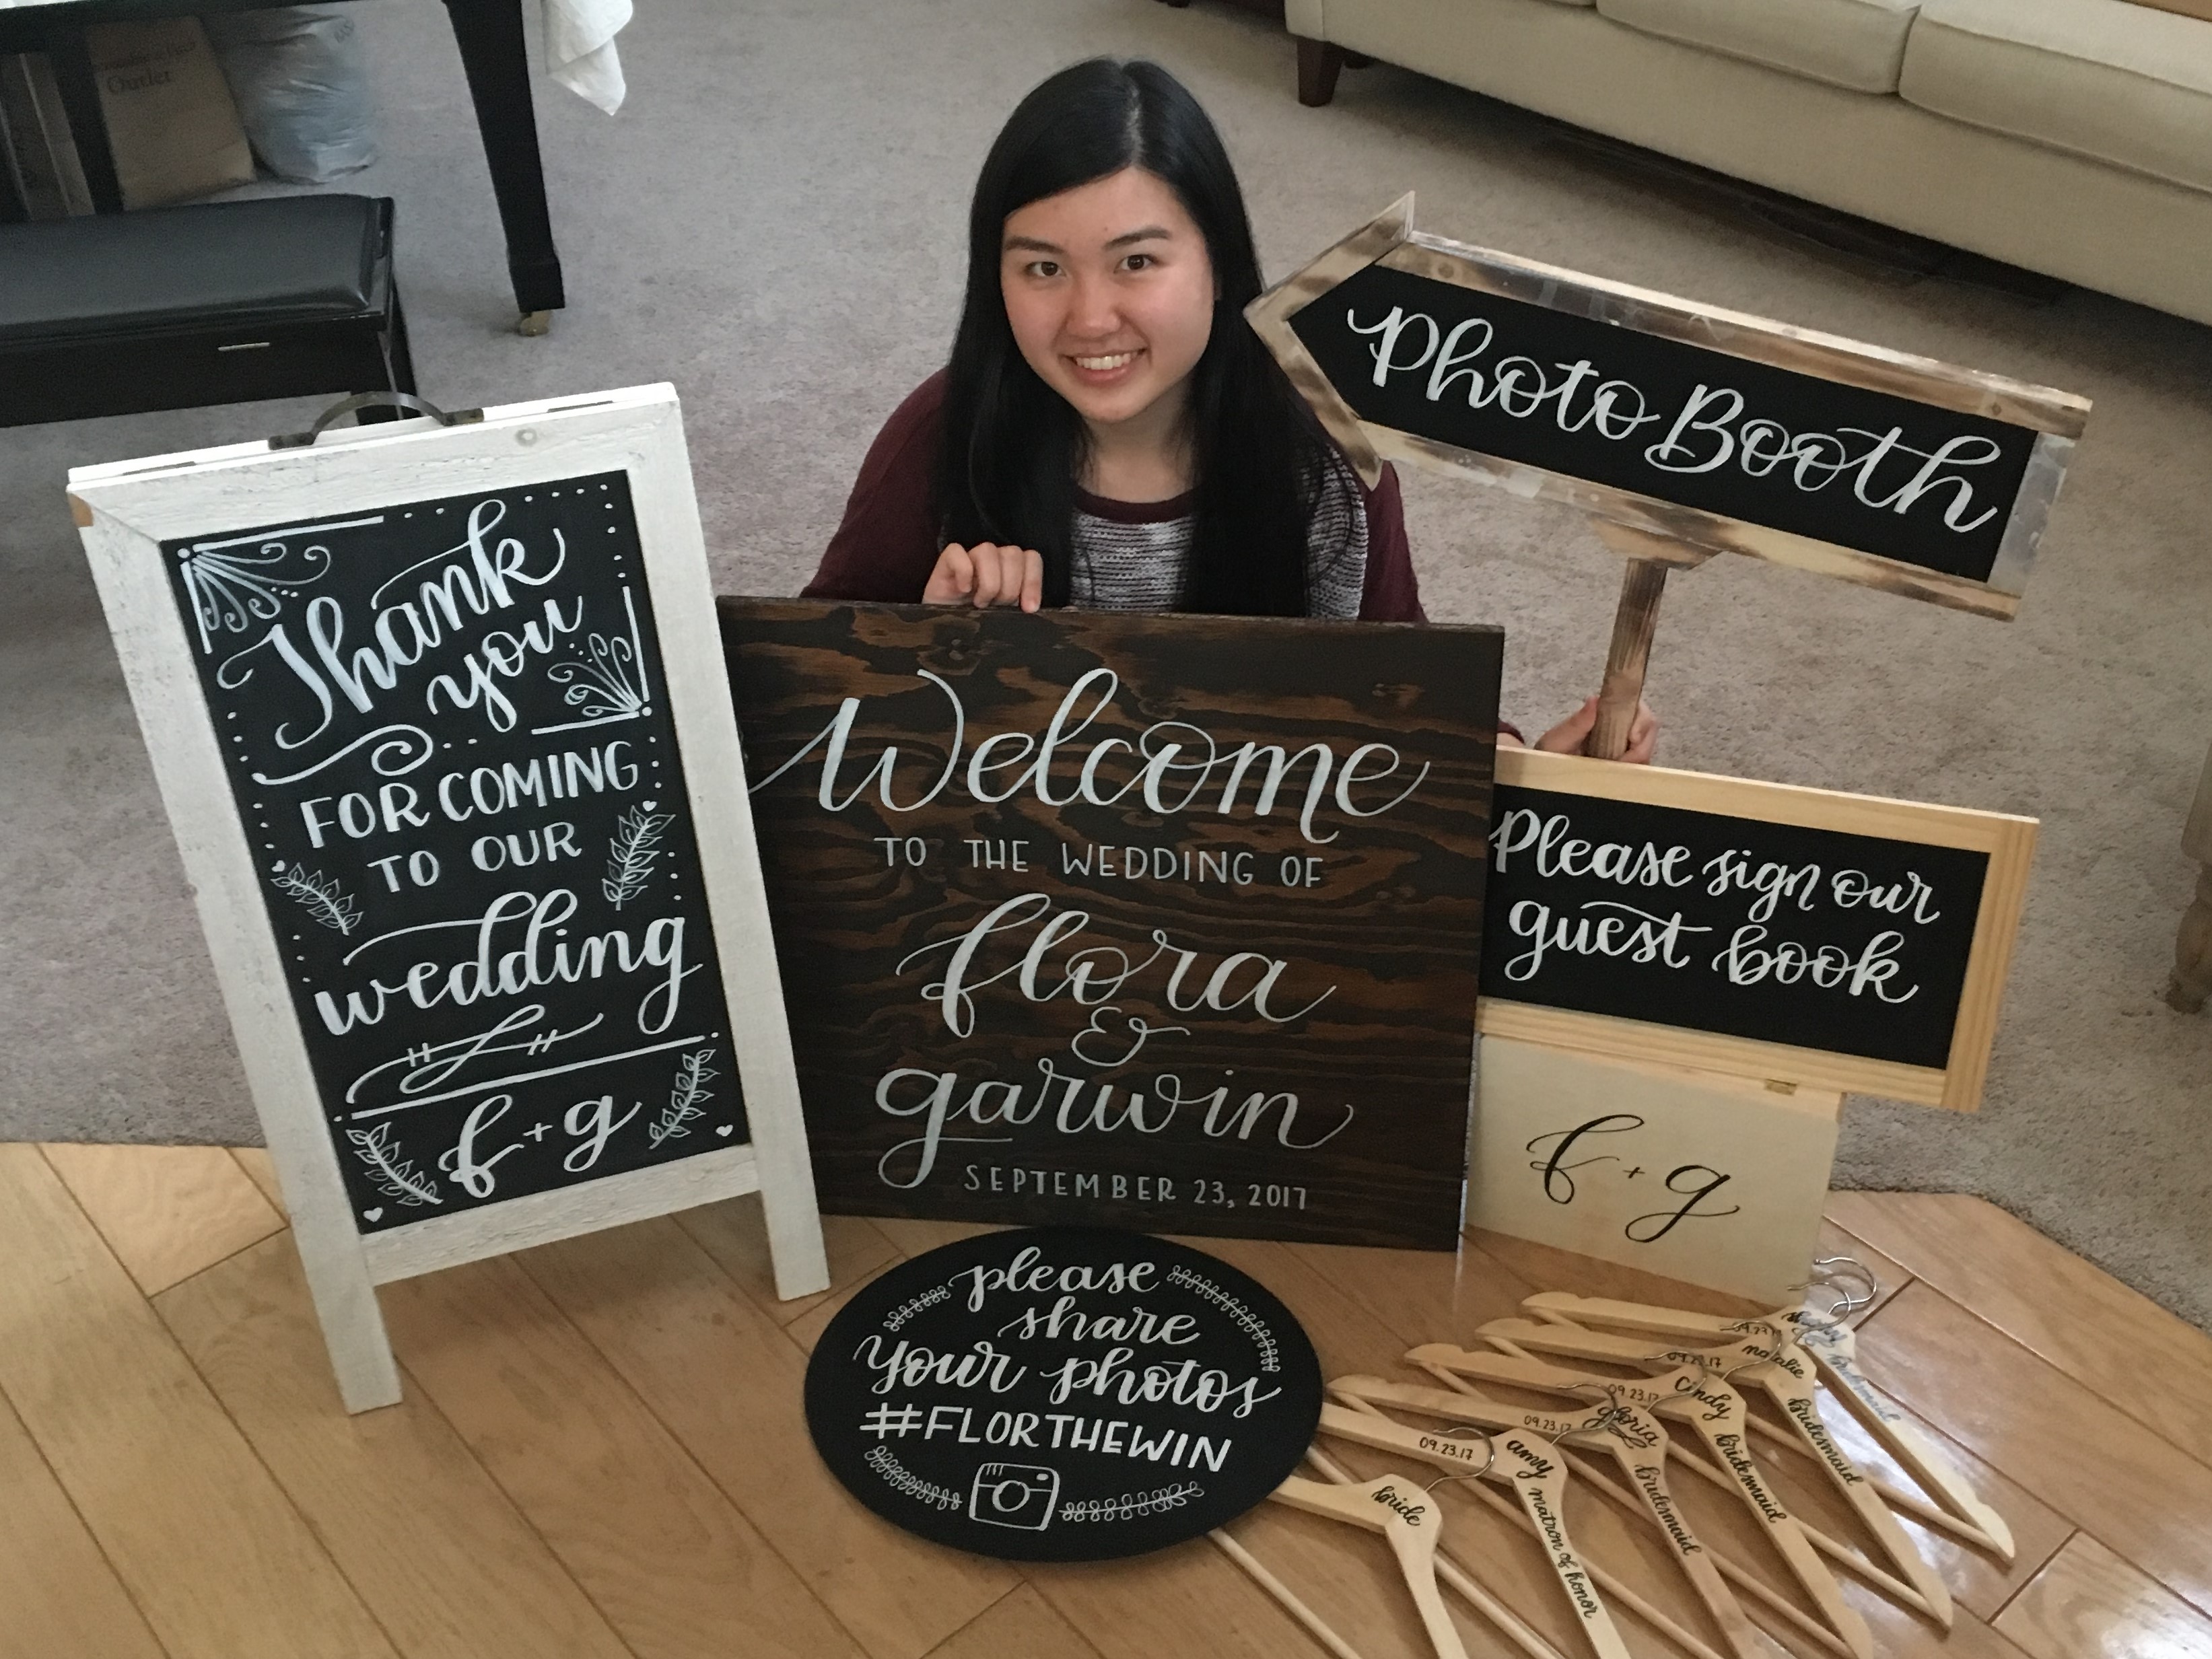 Outlet
Thank
you
FOR COMING
TO OUR
wedding
f + g
Welcome
TO THE WEDDING OF
flora
&
garwin
SEPTEMBER 23, 2017
Photo Booth
Please sign our
guest book
f + g
please
share
your photos
#FLORTHEWIN
bride
09.23.17
amy
matron of honor
09.23.17
gloria
bridesmaid
09.23.17
cindy
bridesmaid
09.23.17
natalie
bridesmaid
09.23.17
bridesmaid